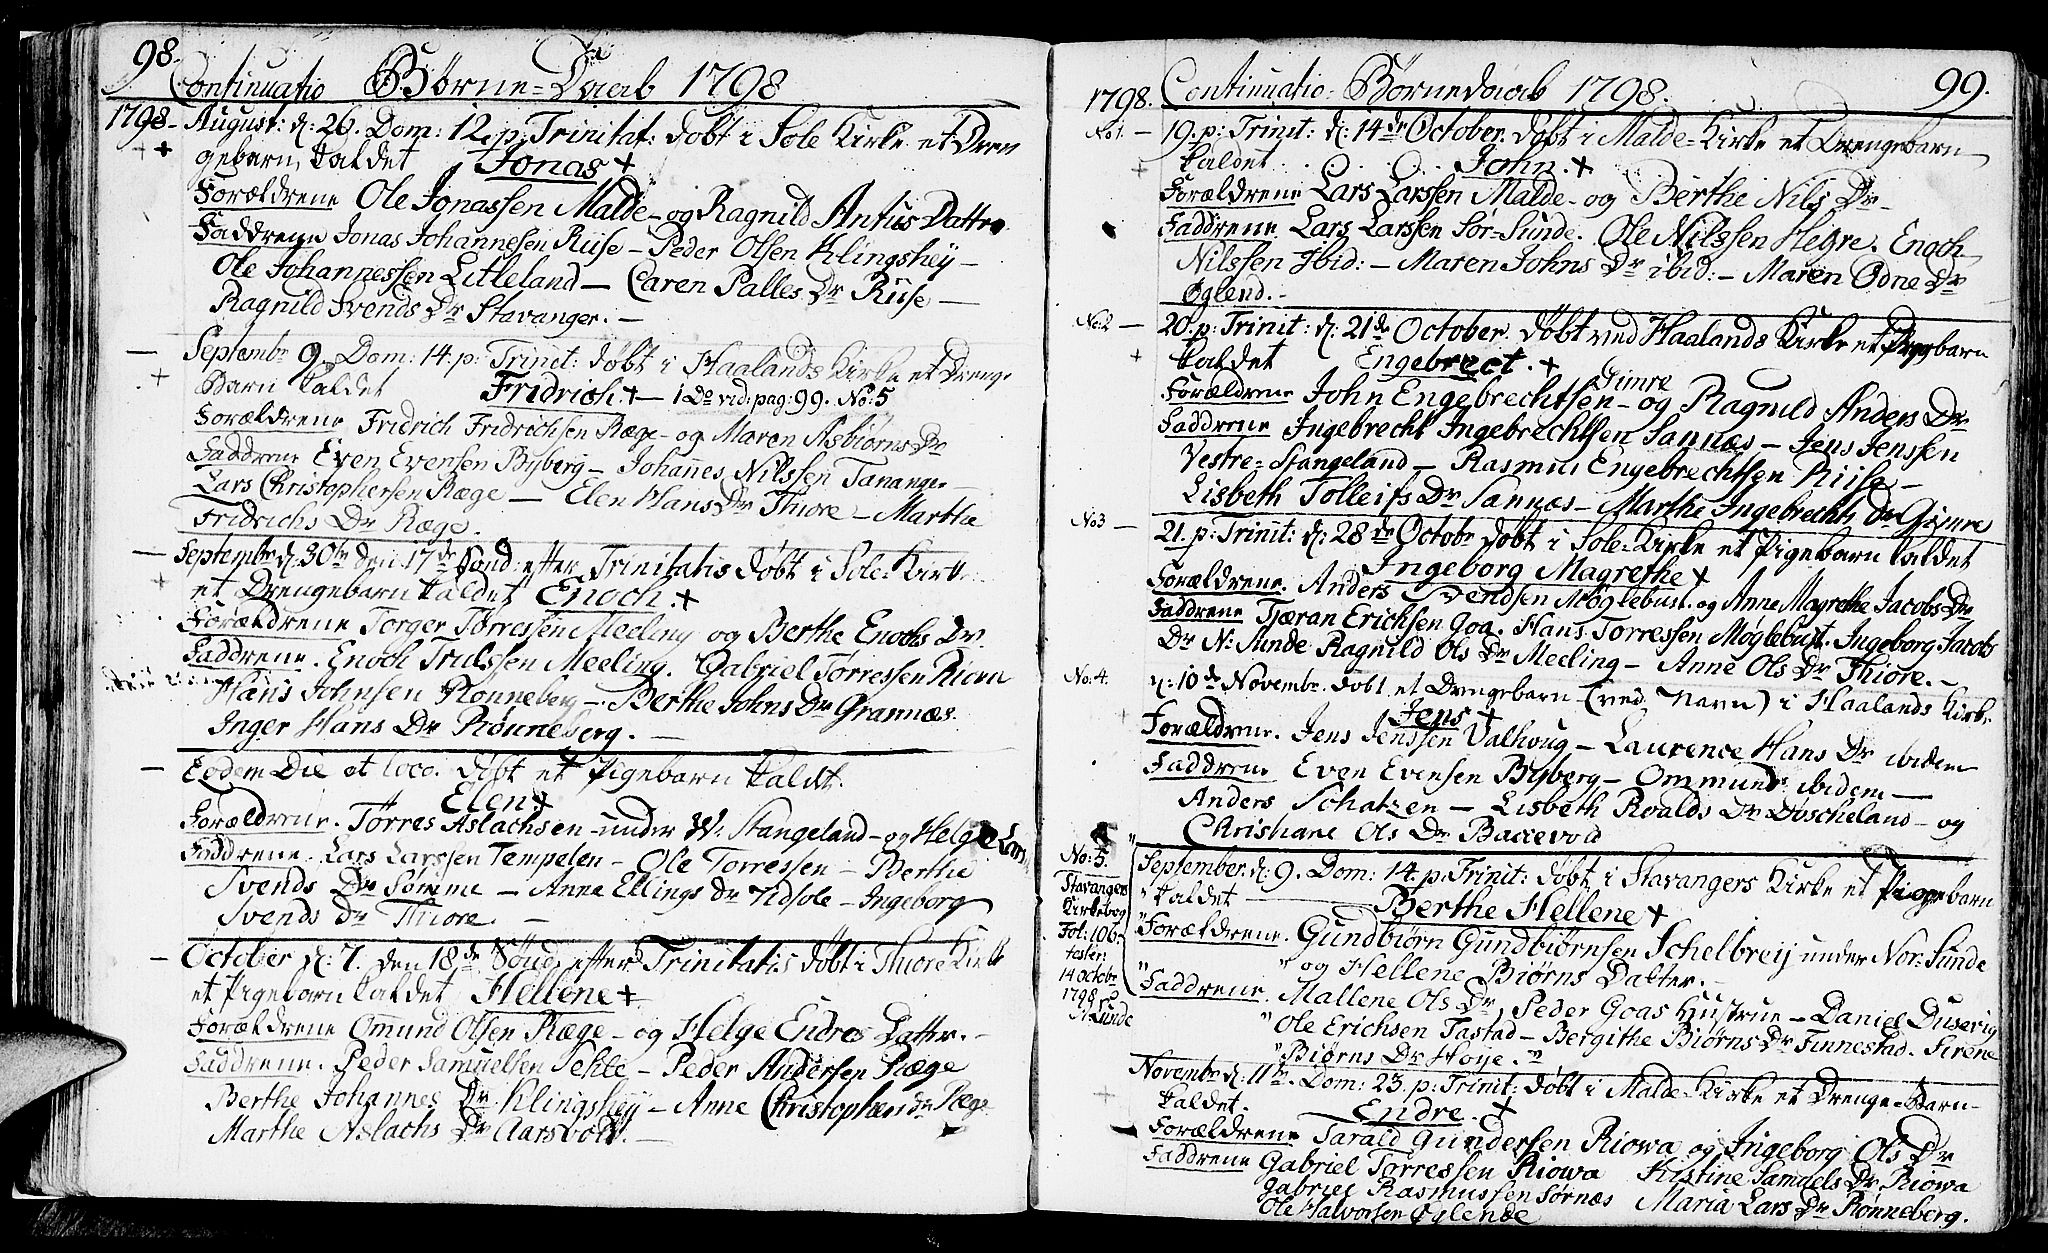 98.
Continuatio Børne=Daab 1798
1798- August: d: 26. Dom: 12. p: Trinitat: døbt i Sole Kirke et Dren
gebarn, kaldet Jonas +
Forældrene Ole Jonassen Malde - og Ragnild Antus Datter
Faddrene Jonas Johannesen Riise - Peder Olsen Klingshey -
Ole Johannessen Litleland - Caren Palles Dr Riise -
Ragnild Svends Dr Stavanger. -
Septembr 9. Dom: 14. p: Trinit: døbt i Haalands Kirke et Drenge
Barn kaldet Fridrich. + - 1 Do vid: pag: 99. No: 5
Forældrene Fridrich Fridrichsen Ræge - og Maren Asbiørns Dr
Faddrene Even Evensen Byberg - Johannes Nilssen Tananger -
Lars Christophersen Ræge - Elen Hans Dr Thiore - Marthe
Fridrichs Dr Ræge.
Septembr d: 30te den 17de Sønd: efter Trinitatis døbt i Sole Kirke
et Drengebarn kaldet Enoch. +
Forældrene Torger Torressen Meeling og Berthe Enochs Dr
Faddrene. Enoch Trulssen Meeling. Gabriel Torressen
Hans Johnsen Rønneberg - Berthe Johns Dr Grannæs
Inger Hans Dr Rønneberg. -
Eodem Die et loco. døbt et Pigebarn kaldt.
Elen +
Forældrene. Tørres Aslachsen under W: Stangeland - og Helge Lars
Faddrene. Lars Larssen Tempelen - Ole Torressen - Berthe
Svends Dr Sømme - Anne Ellings Dr Tidsole - Ingeborg
Svends Dr Thiore. -
October d: 7. den 18de Sønd: efter Trinitatis døbt i Thiore Kirke
et Pigebarn kaldet Hellene +
Forældrene Ommund Olsen Ræge - og Helge Endres Datter. -
Faddrene. Peder Samuelsen - Peder Andersen Ræge
Berthe Johannes Dr Klingshey - Anne Christophers Dr Ræge
Marthe Aslachs Dr Aarsvold. -
1798. Continuatio. Børnedaab 1798. 99.
No 1. - 19. p: Trinit: d: 14de October. døbt i Malde=Kirke et Drengebarn
kaldet . . . . . . John. +
Forældrene Lars Larssen Malde - og Berthe Nils Dr -
Faddrene Lars Larssen Sør=Sunde. Ole Nilssen Hegre. Enoch
Nilssen Ibid: - Maren Johns Dr ibid: - Maren Odne Dr
Øglend. -
No: 2 - 20. p: Trinit: d: 21de October. døbt ved Haalands Kirke et barn
kaldet Engebrect. +
Gimre
Forældrene John Engebrechtsen - og Ragnild Anders Dr
Faddrene Ingebrecht Ingebrechtsen Sannæs - Jens Jenssen
Vestre=Stangeland - Rasmus Engebrechtsen Riise -
Lisbeth Tolleifs Dr Sannæs - Marthe Ingebrechts Dr Gimre
No 3 - 21. p: Trinit: d: 28de Octobr døbt i Sole=Kirke et Pigebarn kaldet
Ingeborg Magrethe +
Forældrene. Anders Svendsen Møglebust. og Anne Magrethe Jacobs Dr
Faddrene Tjæran Erichsen Goa. Hans Torressen Møglebust. Ingeborg Jacobs
Dr N: Sunde Ragnild Ols Dr Meeling - Anne Ols Dr Thiore. -
No: 4. d: 10de Novembr. døbt et Drengebarn (ved Navn) i Haalands Kirke
Jens +
Forældrene. Jens Jenssen Valhoug - Laurence Hans Dr ibidem
Faddrene Even Evensen Byberg - Ommund ibidem -
Anders Schatzen - Lisbeth Roalds Dr Doscheland - og
Christiane Ols Dr Baccevold
No: 5.
Stavangers
Kirkebog
Fol: 106-
14 octobr
1798
September. d: 9. Dom: 14. p: Trinit: døbt i Stavangers Kirke et Pigebarn
" kaldet Berthe Hellene +
" Forældrene. Gundbiørn Gundbiørnsen Schelbreij under Nor: Sunde
" og Hellene Biørns Datter. -
" Faddrene. Mallene Ols Dr, Peder Goas Hustrue - Daniel Duserig
" Ole Erichsen Tastad - Bergithe Biørns Dr Finnestad. Sirene
" Biørns Dr Hoye. "
Novembr d: 11te. Dom: 23. p: Trinit: døbt i Malde=Kirke et Drenge=Barn -
kaldet. Endre. +
Forældrene Tarald Gundersen Riowa og Ingeborg Ols Dr
Faddrene Gabriel Torressen Riowa Kistine Samuels Dr Riowa
Gabriel Rasmussen Sørnæs Maria Lars Dr Rønneberg.
Ole Halvorsen Øglende